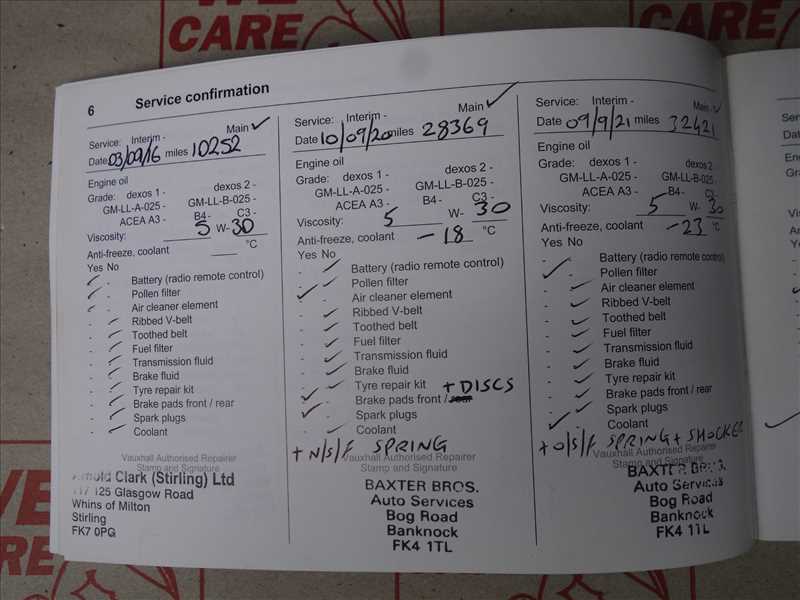 WE
CARE
6 Service confirmation
Service: Interim - Main ✓
Date 03/09/16 miles 10252
Engine oil
Grade: dexos 1 - dexos 2 -
GM-LL-A-025 - GM-LL-B-025 -
ACEA A3 - B4 - C3 -
Viscosity: 5 W- 30
Anti-freeze, coolant °C
Yes No
Battery (radio remote control)
Pollen filter
Air cleaner element
Ribbed V-belt
Toothed belt
Fuel filter
Transmission fluid
Brake fluid
Tyre repair kit
Brake pads front / rear
Spark plugs
Coolant
Vauxhall Authorised Repairer
Stamp and Signature
Arnold Clark (Stirling) Ltd
125 Glasgow Road
Whins of Milton
Stirling
FK7 0PG
Service: Interim - Main ✓
Date 10/09/20 miles 28369
Engine oil
Grade: dexos 1 - dexos 2 -
GM-LL-A-025 - GM-LL-B-025 -
ACEA A3 - B4 - C3 -
Viscosity: 5 W- 30
Anti-freeze, coolant -18 °C
Yes No
Battery (radio remote control)
Pollen filter
Air cleaner element
Ribbed V-belt
Toothed belt
Fuel filter
Transmission fluid
Brake fluid
Tyre repair kit + DISCS
Brake pads front / rear
Spark plugs
Coolant
+ N/S/F SPRING
Vauxhall Authorised Repairer
Stamp and Signature
BAXTER BROS.
Auto Services
Bog Road
Banknock
FK4 1TL
Service: Interim - Main - ✓
Date 09/9/21 miles 32421
Engine oil
Grade: dexos 1 - dexos 2
GM-LL-A-025 - GM-LL-B-025 -
ACEA A3 - B4 - C3 -
Viscosity: 5 W- 30
Anti-freeze, coolant -23 °C
Yes No
Battery (radio remote control)
Pollen filter
Air cleaner element
Ribbed V-belt
Toothed belt
Fuel filter
Transmission fluid
Brake fluid
Tyre repair kit
Brake pads front / rear
Spark plugs
Coolant
+ O/S/F SPRING + SHOCKER
Vauxhall Authorised Repairer
Stamp and Signature
BAXTER BROS.
Auto Services
Bog Road
Banknock
FK4 1TL
WE
CARE